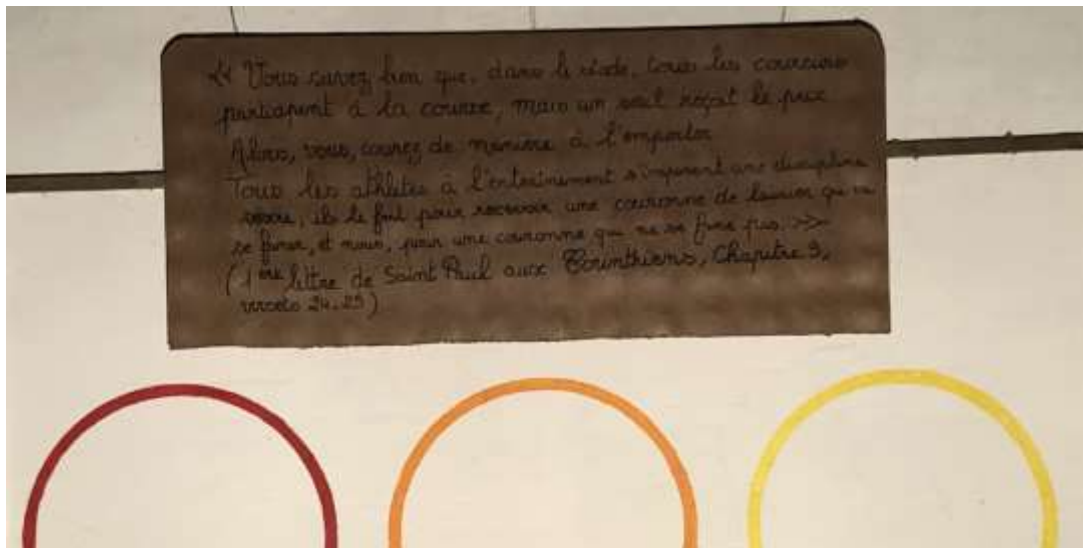 « Vous savez bien que, dans le stade, tous les coureurs
participent à la course, mais un seul reçoit le prix
Alors, vous, courez de manière à l'emporter
Tous les athlètes à l'entraînement s'imposent une discipline
ils le font pour recevoir une couronne de laurier qui va
se faner, et nous, pour une couronne qui ne se fane pas. »
(1ère lettre de Saint Paul aux Corinthiens, Chapitre 9,
versets 24.25)